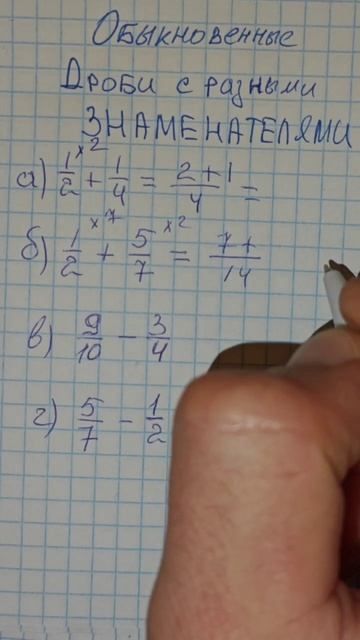 Обыкновенные
Дроби с разными
Знаменателями
а) 1/2 ×2 + 1/4 = 2+1/4 =
б) 1/2 ×7 + 5/7 ×2 = 7+/14
в) 9/10 - 3/4
г) 5/7 - 1/2